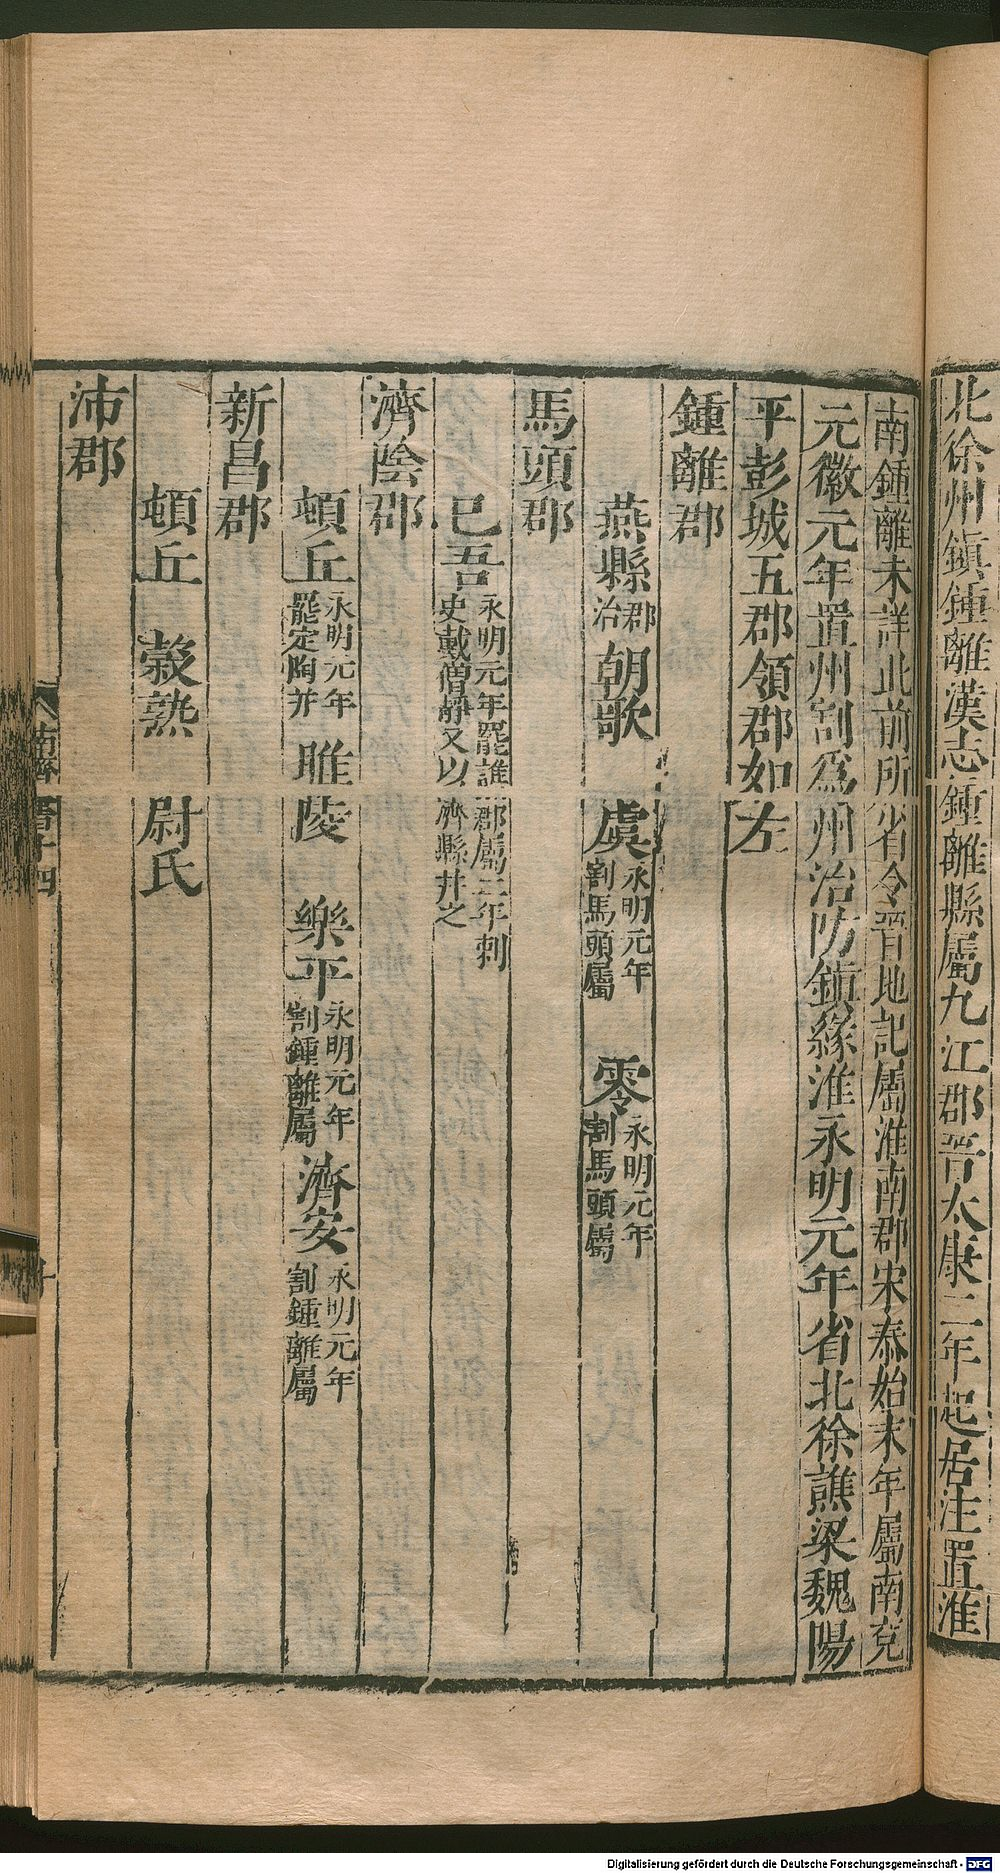 北徐州鎮鍾離漢志鍾離縣屬九江郡晉太康二年起居注置淮
南鍾離未詳此前所省令晉地記屬淮南郡宋泰始末年屬南兗
元徽元年置州割爲州治防鎮緣淮永明元年省北徐譙梁魏陽
平彭城五郡領郡如左
鍾離郡
燕縣 郡治 朝歌 虞 永明元年割馬頭屬 零 永明元年割馬頭屬
馬頭郡
巳吾 永明元年罷譙郡屬二年刺史戴僧靜又以濟縣并之
濟陰郡
頓丘 永明元年罷定陶并 睢陵 樂平 永明元年割鍾離屬 濟安 永明元年割鍾離屬
新昌郡
頓丘 穀熟 尉氏
沛郡
南齊書十四
十
Digitalisierung gefördert durch die Deutsche Forschungsgemeinschaft - DFG